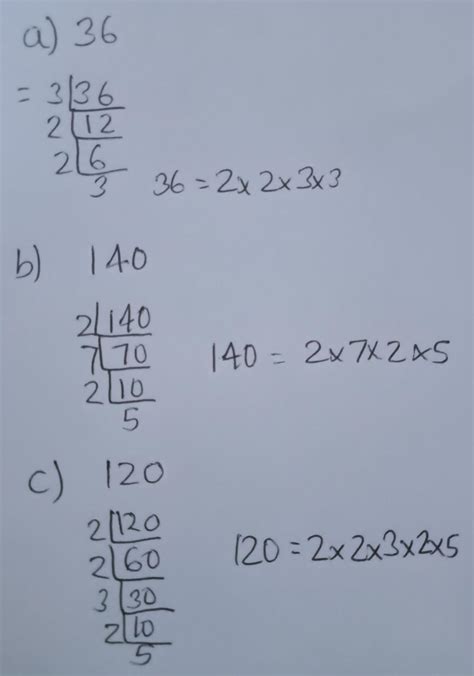 a) 36
= 3|36
2|12
2|6
3
36 = 2x 2x 3x3
b) 140
2|140
7|70
2|10
5
140 = 2x7x2x5
c) 120
2|120
2|60
3|30
2|10
5
120 = 2x2x3x2x5